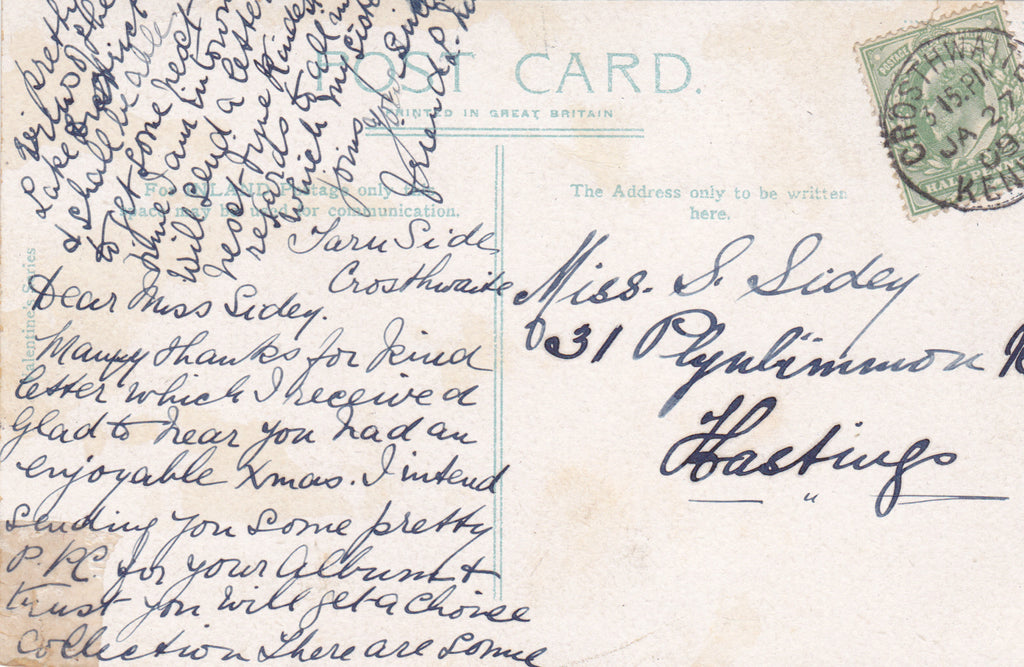 POST CARD.
PRINTED IN GREAT BRITAIN
For INLAND Postage only this
space may be used for communication.
The Address only to be written
here.
Valentine's Series
CROSTHWAITE
3 15 PM
JA 27
09
KEN
POSTAGE
HALF
Tarn Side
Crosthwaite
Dear Miss Sidey.
Many thanks for kind
letter which I received
Glad to hear you had an
enjoyable Xmas. I intend
sending you some pretty
P.PC. for your Album &
trust you will get a choice
Collection There are some
pretty
Lake
& shall be able
to get some next
time I am in town
will send a letter
next time kindest
regards to all in
which my sister
joins
Your
friend
Miss. S. Sidey
31 Plynlimmon R
Hastings